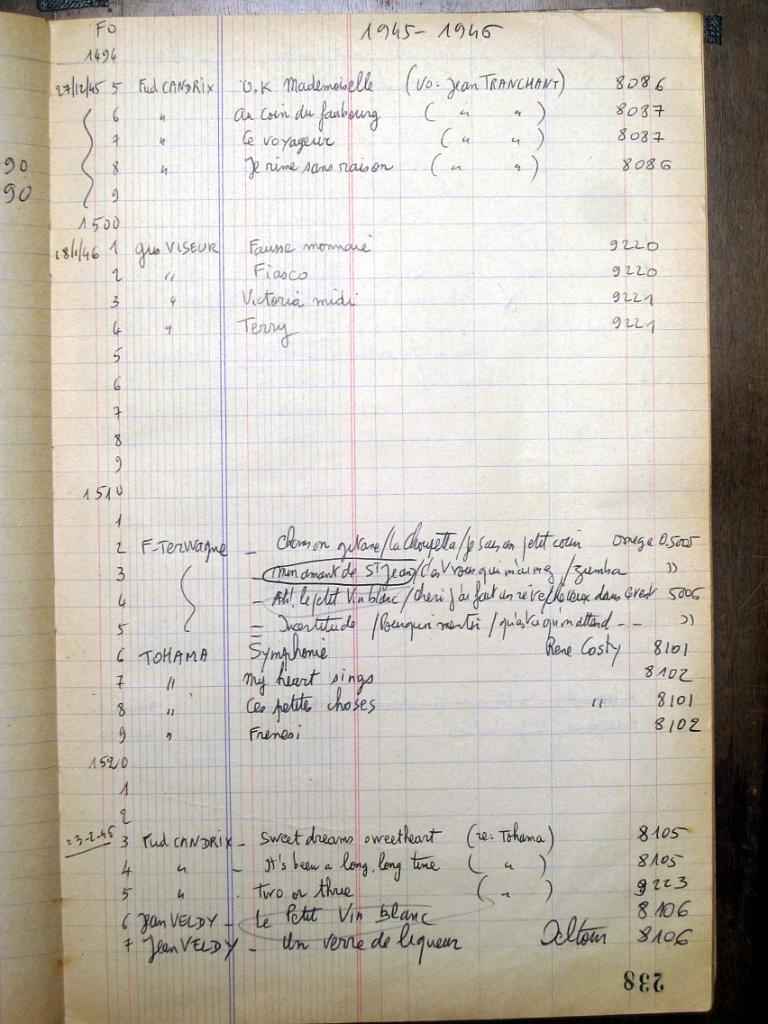 FO 1945-1946
1494
27/12/45 5 Fud CANDRIX O.K Mademoiselle (vo: Jean TRANCHANT) 8086
6 " Au coin du faubourg ( " " ) 8087
7 " Le voyageur ( " " ) 8087
90 8 " Je rime sans raison ( " " ) 8086
90 9
1500
18/1/46 1 Gus VISEUR Fausse monnaie 9220
2 " Fiasco 9220
3 " Victoria midi 9221
4 " Terry 9221
5
6
7
8
9
1510
1
2 F-Terwagne - Chanson gitane/la Choupetta/je sais un petit coin Omega 0.5005
3 mon amant de St Jean/c'est vous qui m'aimez/zumba "
4 - Ah! le petit vin blanc/cheri j'ai fait un rêve/cheveux dans le vent 5006
5 - Incertitude /Pourquoi mentir/qu'est-ce qu'on attend - - "
6 TOHAMA Symphonie René Costy 8101
7 " My heart sings 8102
8 " Ces petites choses " 8101
9 " Frenesi 8102
1520
1
2
23-2-46 3 Fud CANDRIX - Sweet dreams sweetheart (re: Tohama) 8105
4 " - It's been a long, long time ( " ) 8105
5 " Two or three ( " ) 9223
6 Jean VELDY - Le Petit Vin blanc 8106
7 Jean VELDY - Un verre de liqueur Deltour 8106
238